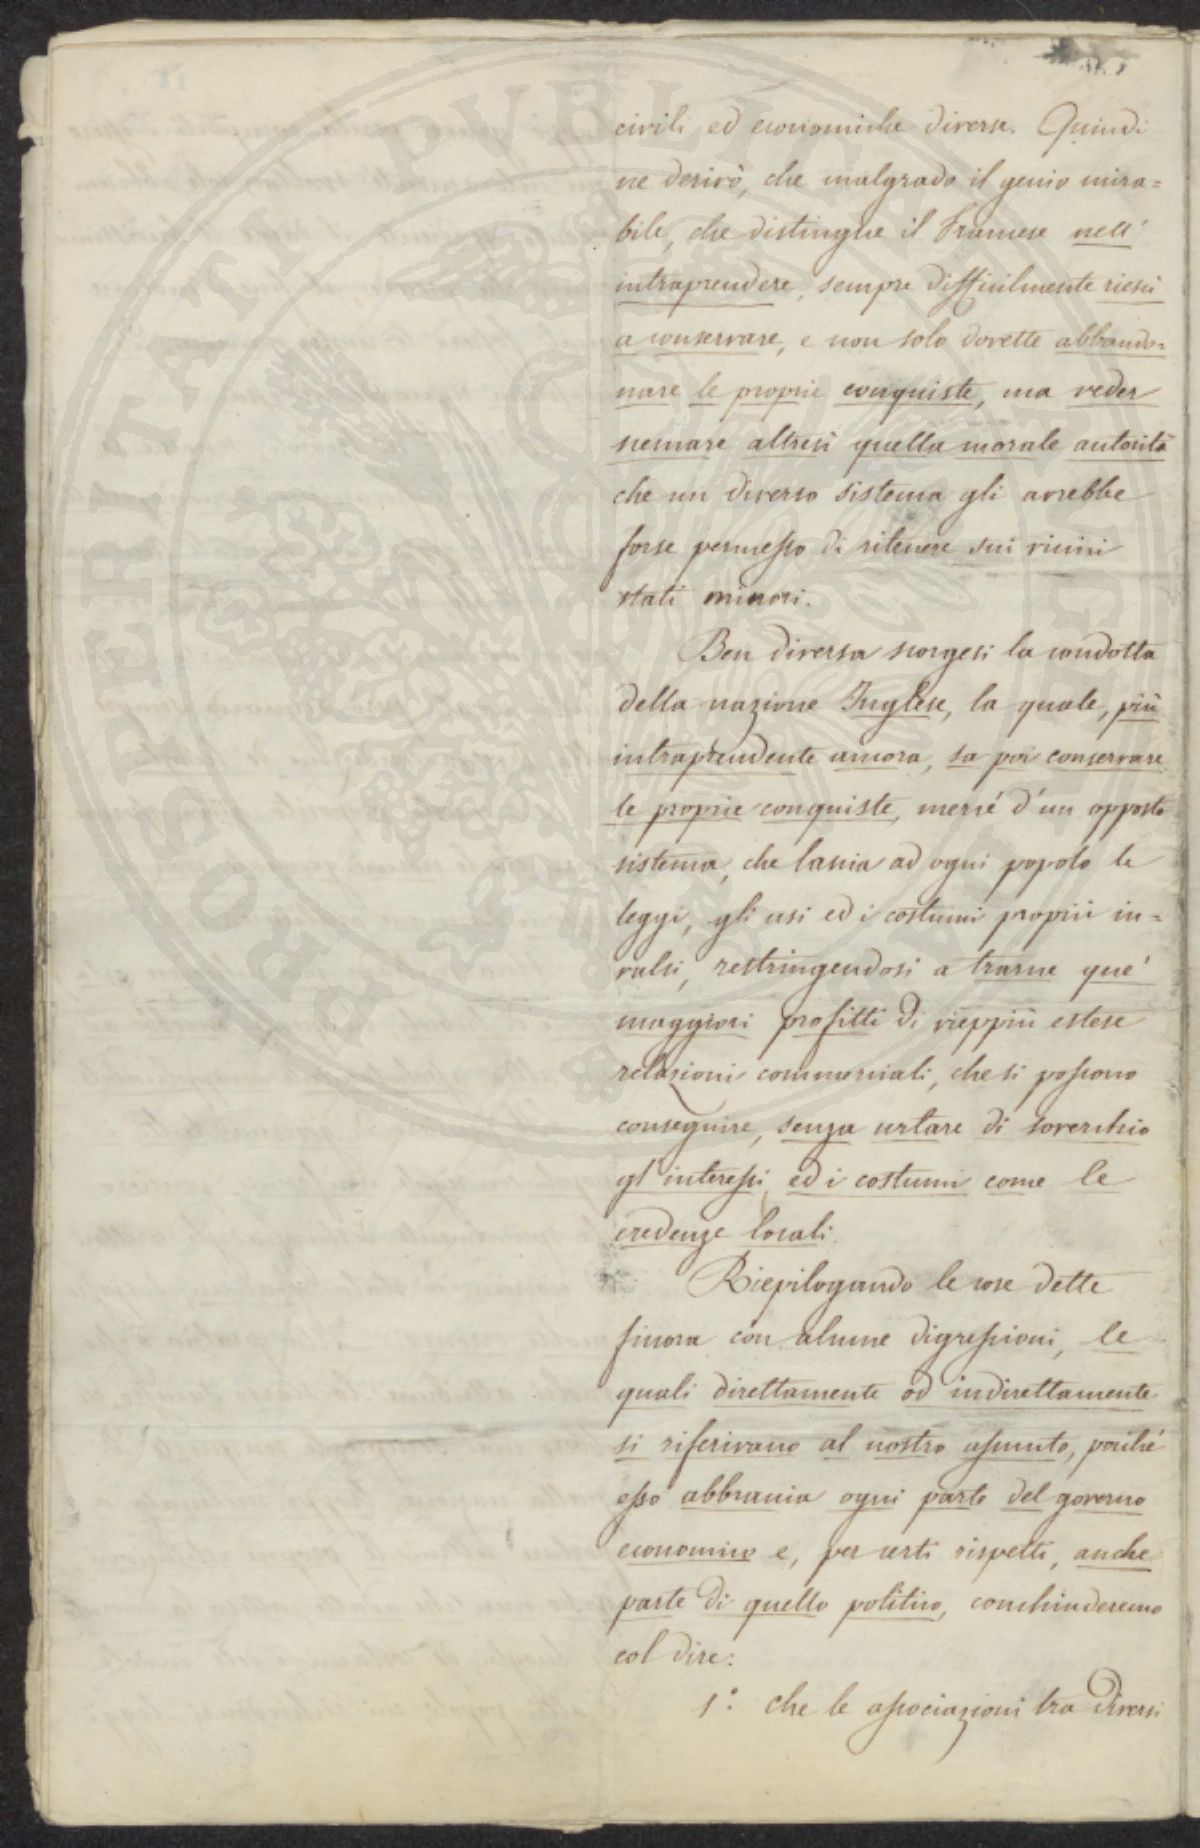 civili ed economiche diverse. Quindi
ne derivò, che malgrado il genio mira=
bile, che distingue il Francese nell'
intraprendere, sempre difficilmente riescì
a conservare, e non solo dovette abbando=
nare le proprie conquiste, ma veder
scemare altresì quella morale autorità
che un diverso sistema gli avrebbe
forse permesso di ritenere sui vicini
stati minori.
Ben diversa scorgesi la condotta
della nazione Inglese, la quale, più
intraprendente ancora, sa poi conservare
le proprie conquiste, mercé d'un opposto
sistema, che lascia ad ogni popolo le
leggi, gli usi ed i costumi proprii in=
valsi, restringendosi a trarne que'
maggiori profitti di vieppiù estese
relazioni commerciali, che si possono
conseguire, senza urtare di soverchio
gl'interessi, ed i costumi come le
credenze locali.
Riepilogando le cose dette
finora con alcune digressioni, le
quali direttamente od indirettamente
si riferivano al nostro assunto, poiché
esso abbraccia ogni parte del governo
economico e, per certi rispetti, anche
parte di quello politico, conchiuderemo
col dire:
1.° che le associazioni tra diversi
PROSPERITATI PUBLICAE